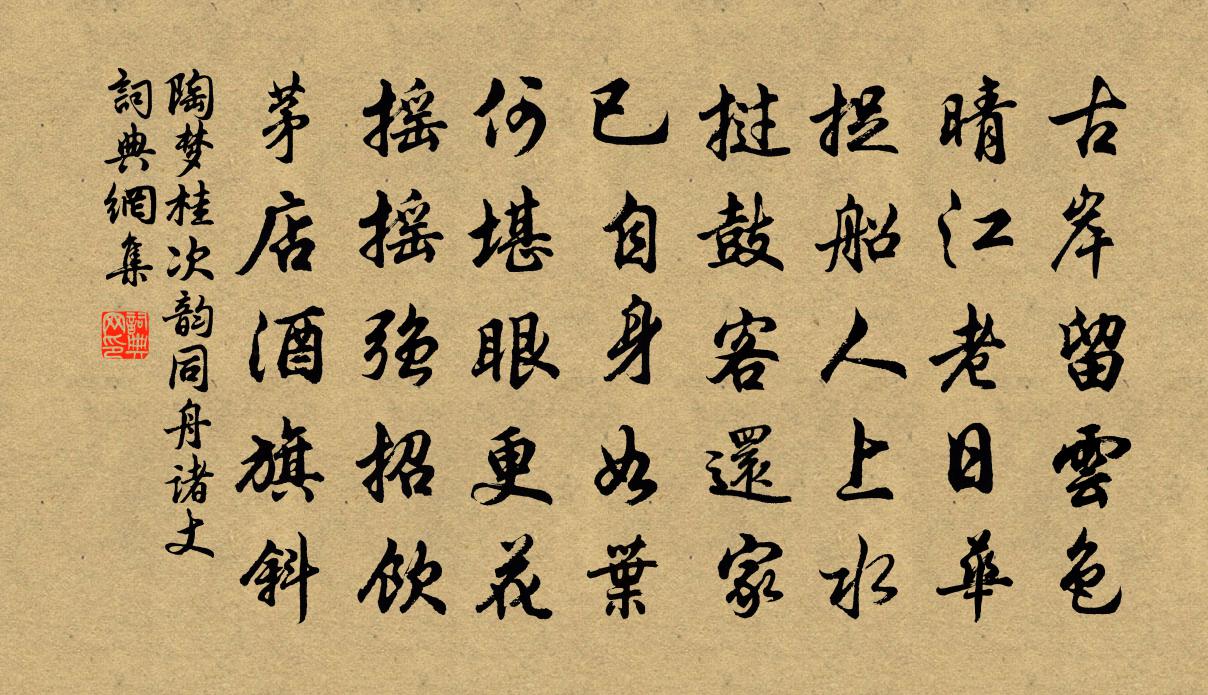 古岸留雲色
晴江老日華
捉船人上水
挝鼓客還家
已自身如葉
何堪眼更花
摇摇强招飲
茅店酒旗斜
陶梦桂次韵同舟诸丈
詞典網集
詞典网印